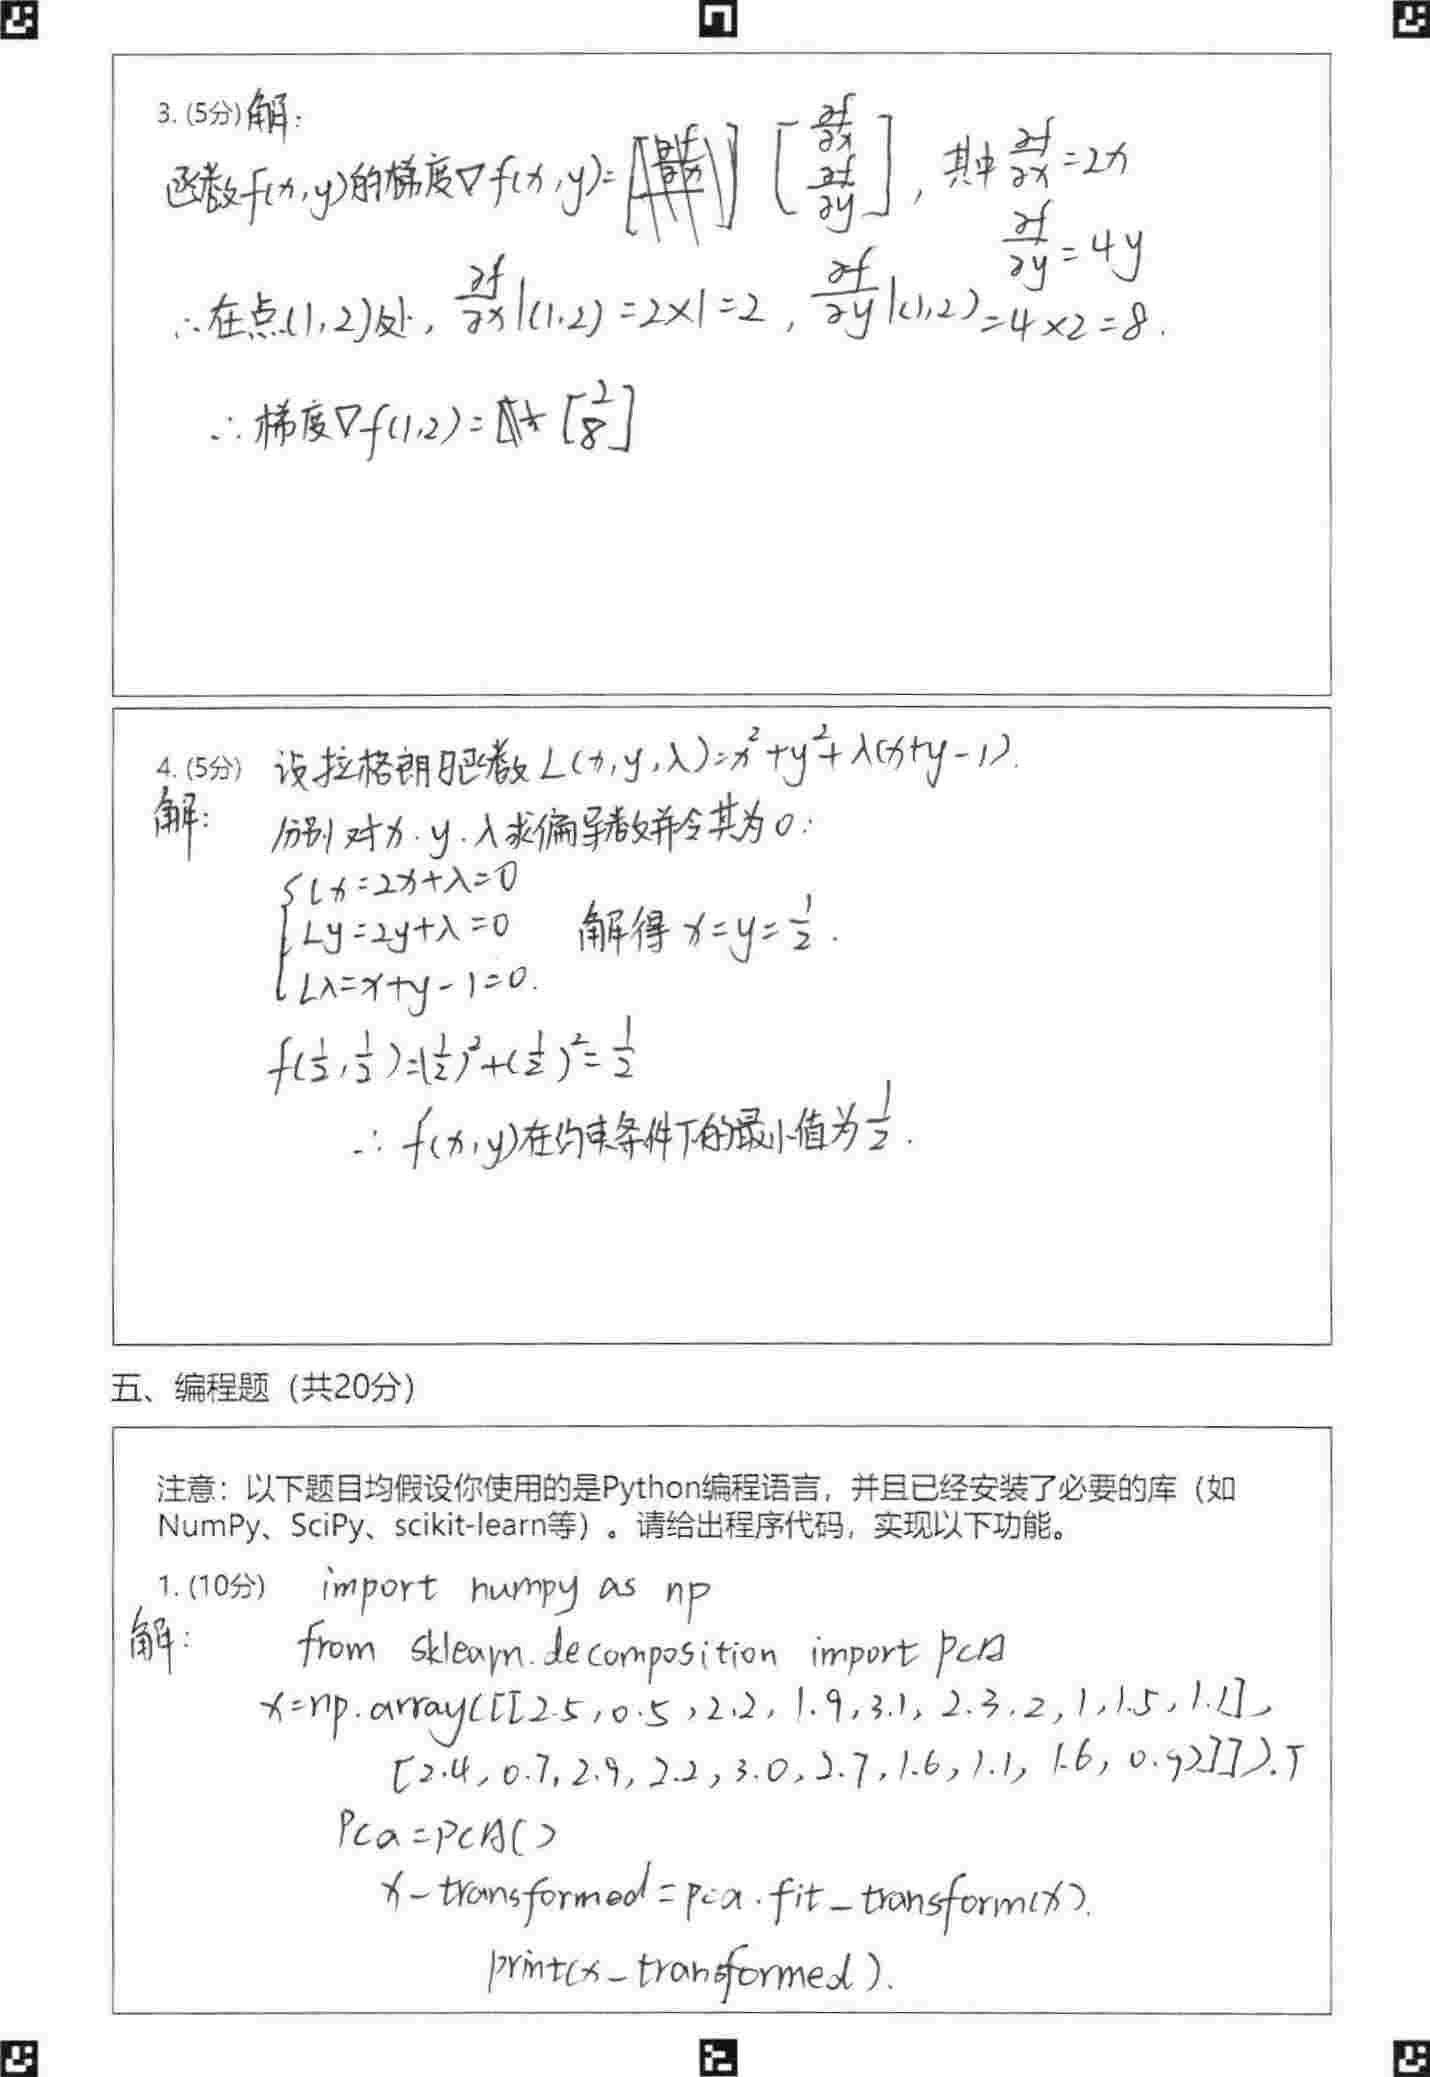 3. (5分) 解:
函数f(x,y)的梯度∇f(x,y)= [∂f/∂x ∂f/∂y], 其中 ∂f/∂x = 2x
∂f/∂y = 4y
∴在点(1,2)处, ∂f/∂x|(1,2) = 2×1 = 2, ∂f/∂y|(1,2) = 4×2 = 8.
∴梯度∇f(1,2) = [2 8]
4. (5分) 设拉格朗日函数 L(x,y,λ)=x²+y²+λ(x+y-1).
解: 分别对x.y.λ求偏导数并令其为0:
{Lx=2x+λ=0
Ly=2y+λ=0 解得 x=y=1/2.
Lλ=x+y-1=0.
f(1/2,1/2)=(1/2)²+(1/2)²=1/2
∴ f(x,y)在约束条件下的最小值为1/2.
五、编程题（共20分）
注意：以下题目均假设你使用的是Python编程语言，并且已经安装了必要的库（如
NumPy、SciPy、scikit-learn等）。请给出程序代码，实现以下功能。
1. (10分) import numpy as np
解: from sklearn.decomposition import PCA
x=np.array([[2.5,0.5,2.2,1.9,3.1,2.3,2,1,1.5,1.1],
[2.4,0.7,2.9,2.2,3.0,2.7,1.6,1.1,1.6,0.9]]).T
Pca=PCA()
x-transformed=pca.fit_transform(x).
print(x-transformed).